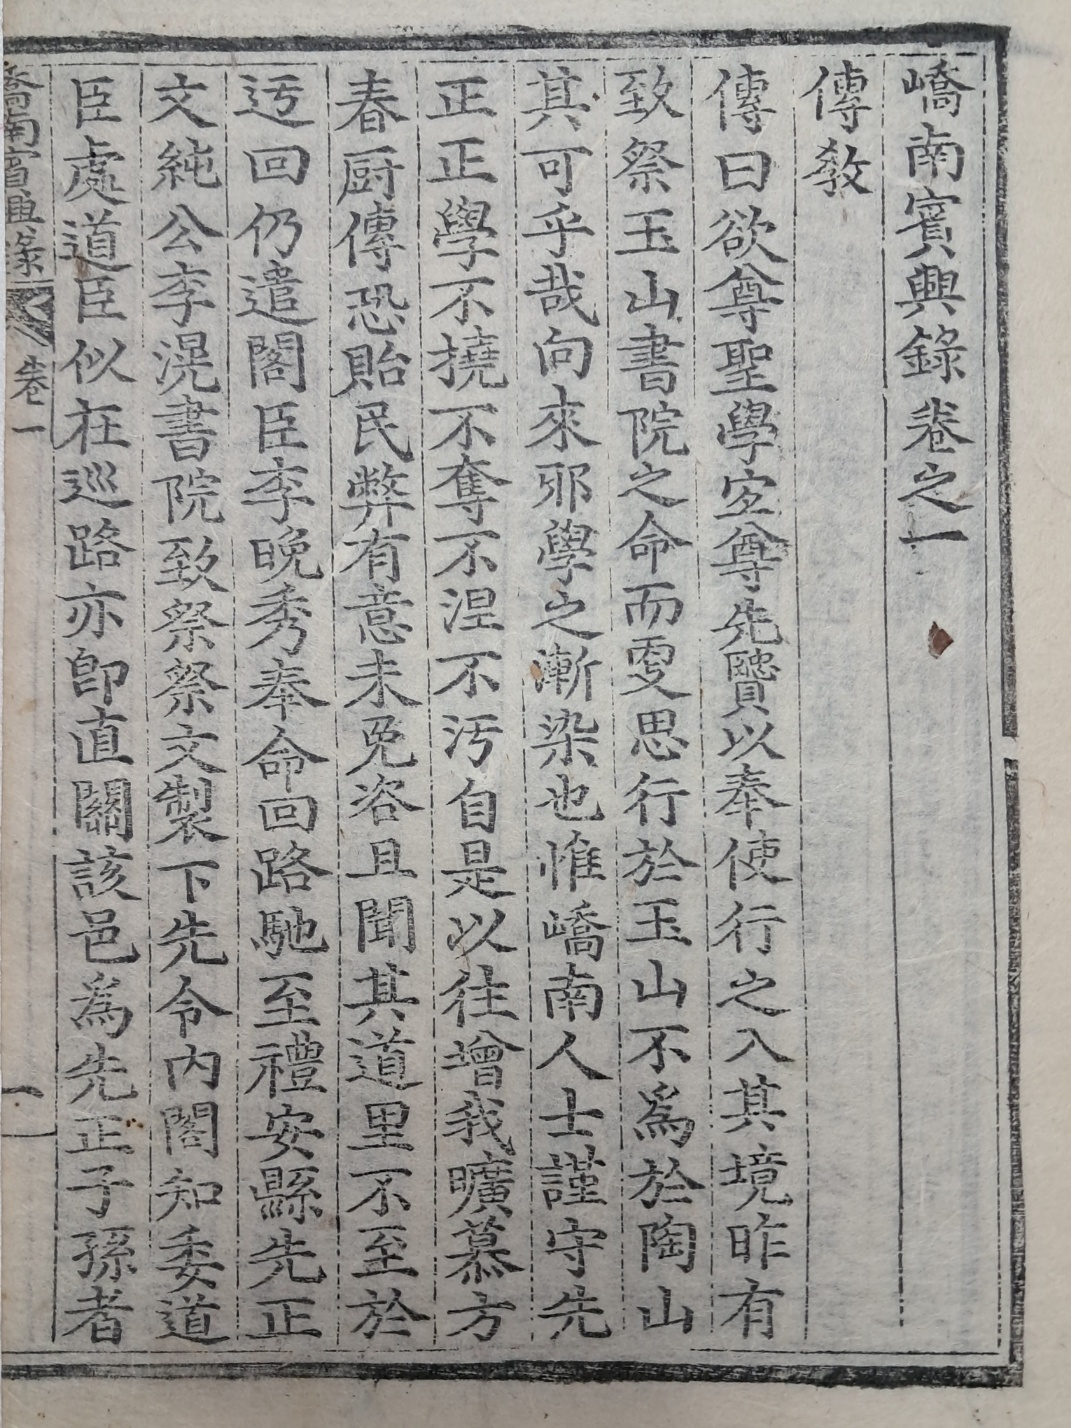 嶠南賓興錄卷之一
傳敎
傳曰欲尊聖學宜尊先賢以奉使行之入其境昨有
致祭玉山書院之命而更思行於玉山不爲於陶山
其可乎哉向來邪學之漸染也惟嶠南人士謹守先
正正學不撓不奪不涅不汚自是以往增我曠慕方
春厨傳恐貽民弊有意未免咨且聞其道里不至於
迃回仍遣閣臣李晚秀奉命回路馳至禮安縣先正
文純公李滉書院致祭祭文製下先令內閣知委道
臣處道臣似在巡路亦卽直關該邑爲先正子孫者
嶠南賓興錄 卷一 一